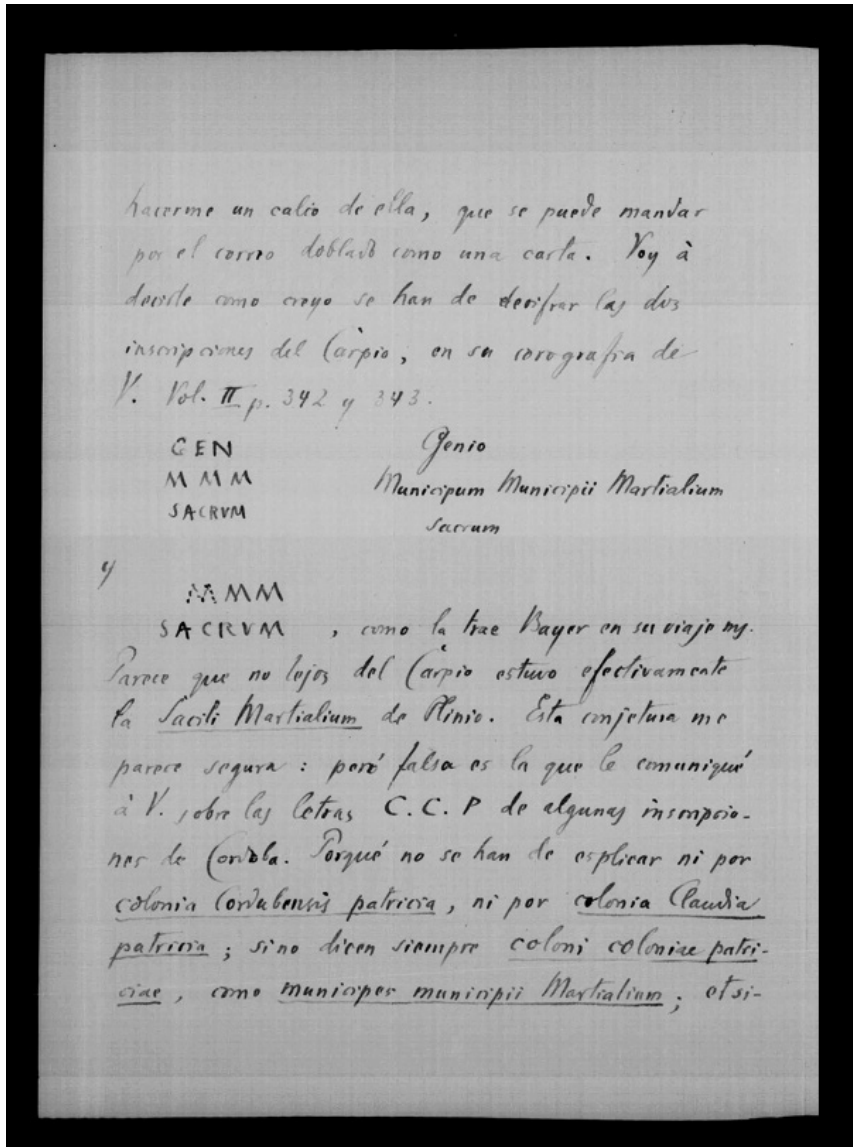 hacerme un calco de ella, que se puede mandar
por el correo doblado como una carta. Voy à
decirle como creyo se han de decifrar las dos
inscripciones del Cárpio, en su corografia de
V. Vol. II p. 342 y 343.
GEN Genio
M M M Municipum Municipii Martialium
SACRVM Sacrum
y
MMM
SACRVM , como la trae Bayer en su viaje ms.
Parece que no lejos del Cárpio estuvo efectivamente
la Sacili Martialium de Plinio. Esta conjetura me
parece segura : peró falsa es la que le comuniqué
à V. sobre las letras C. C. P de algunas inscripcio-
nes de Cordoba. Porqué no se han de esplicar ni por
colonia Cordubensis patricia, ni por colonia Claudia
patricia ; sino dicen siempre coloni coloniae patri-
ciae , como municipes municipii Martialium ; etsi-